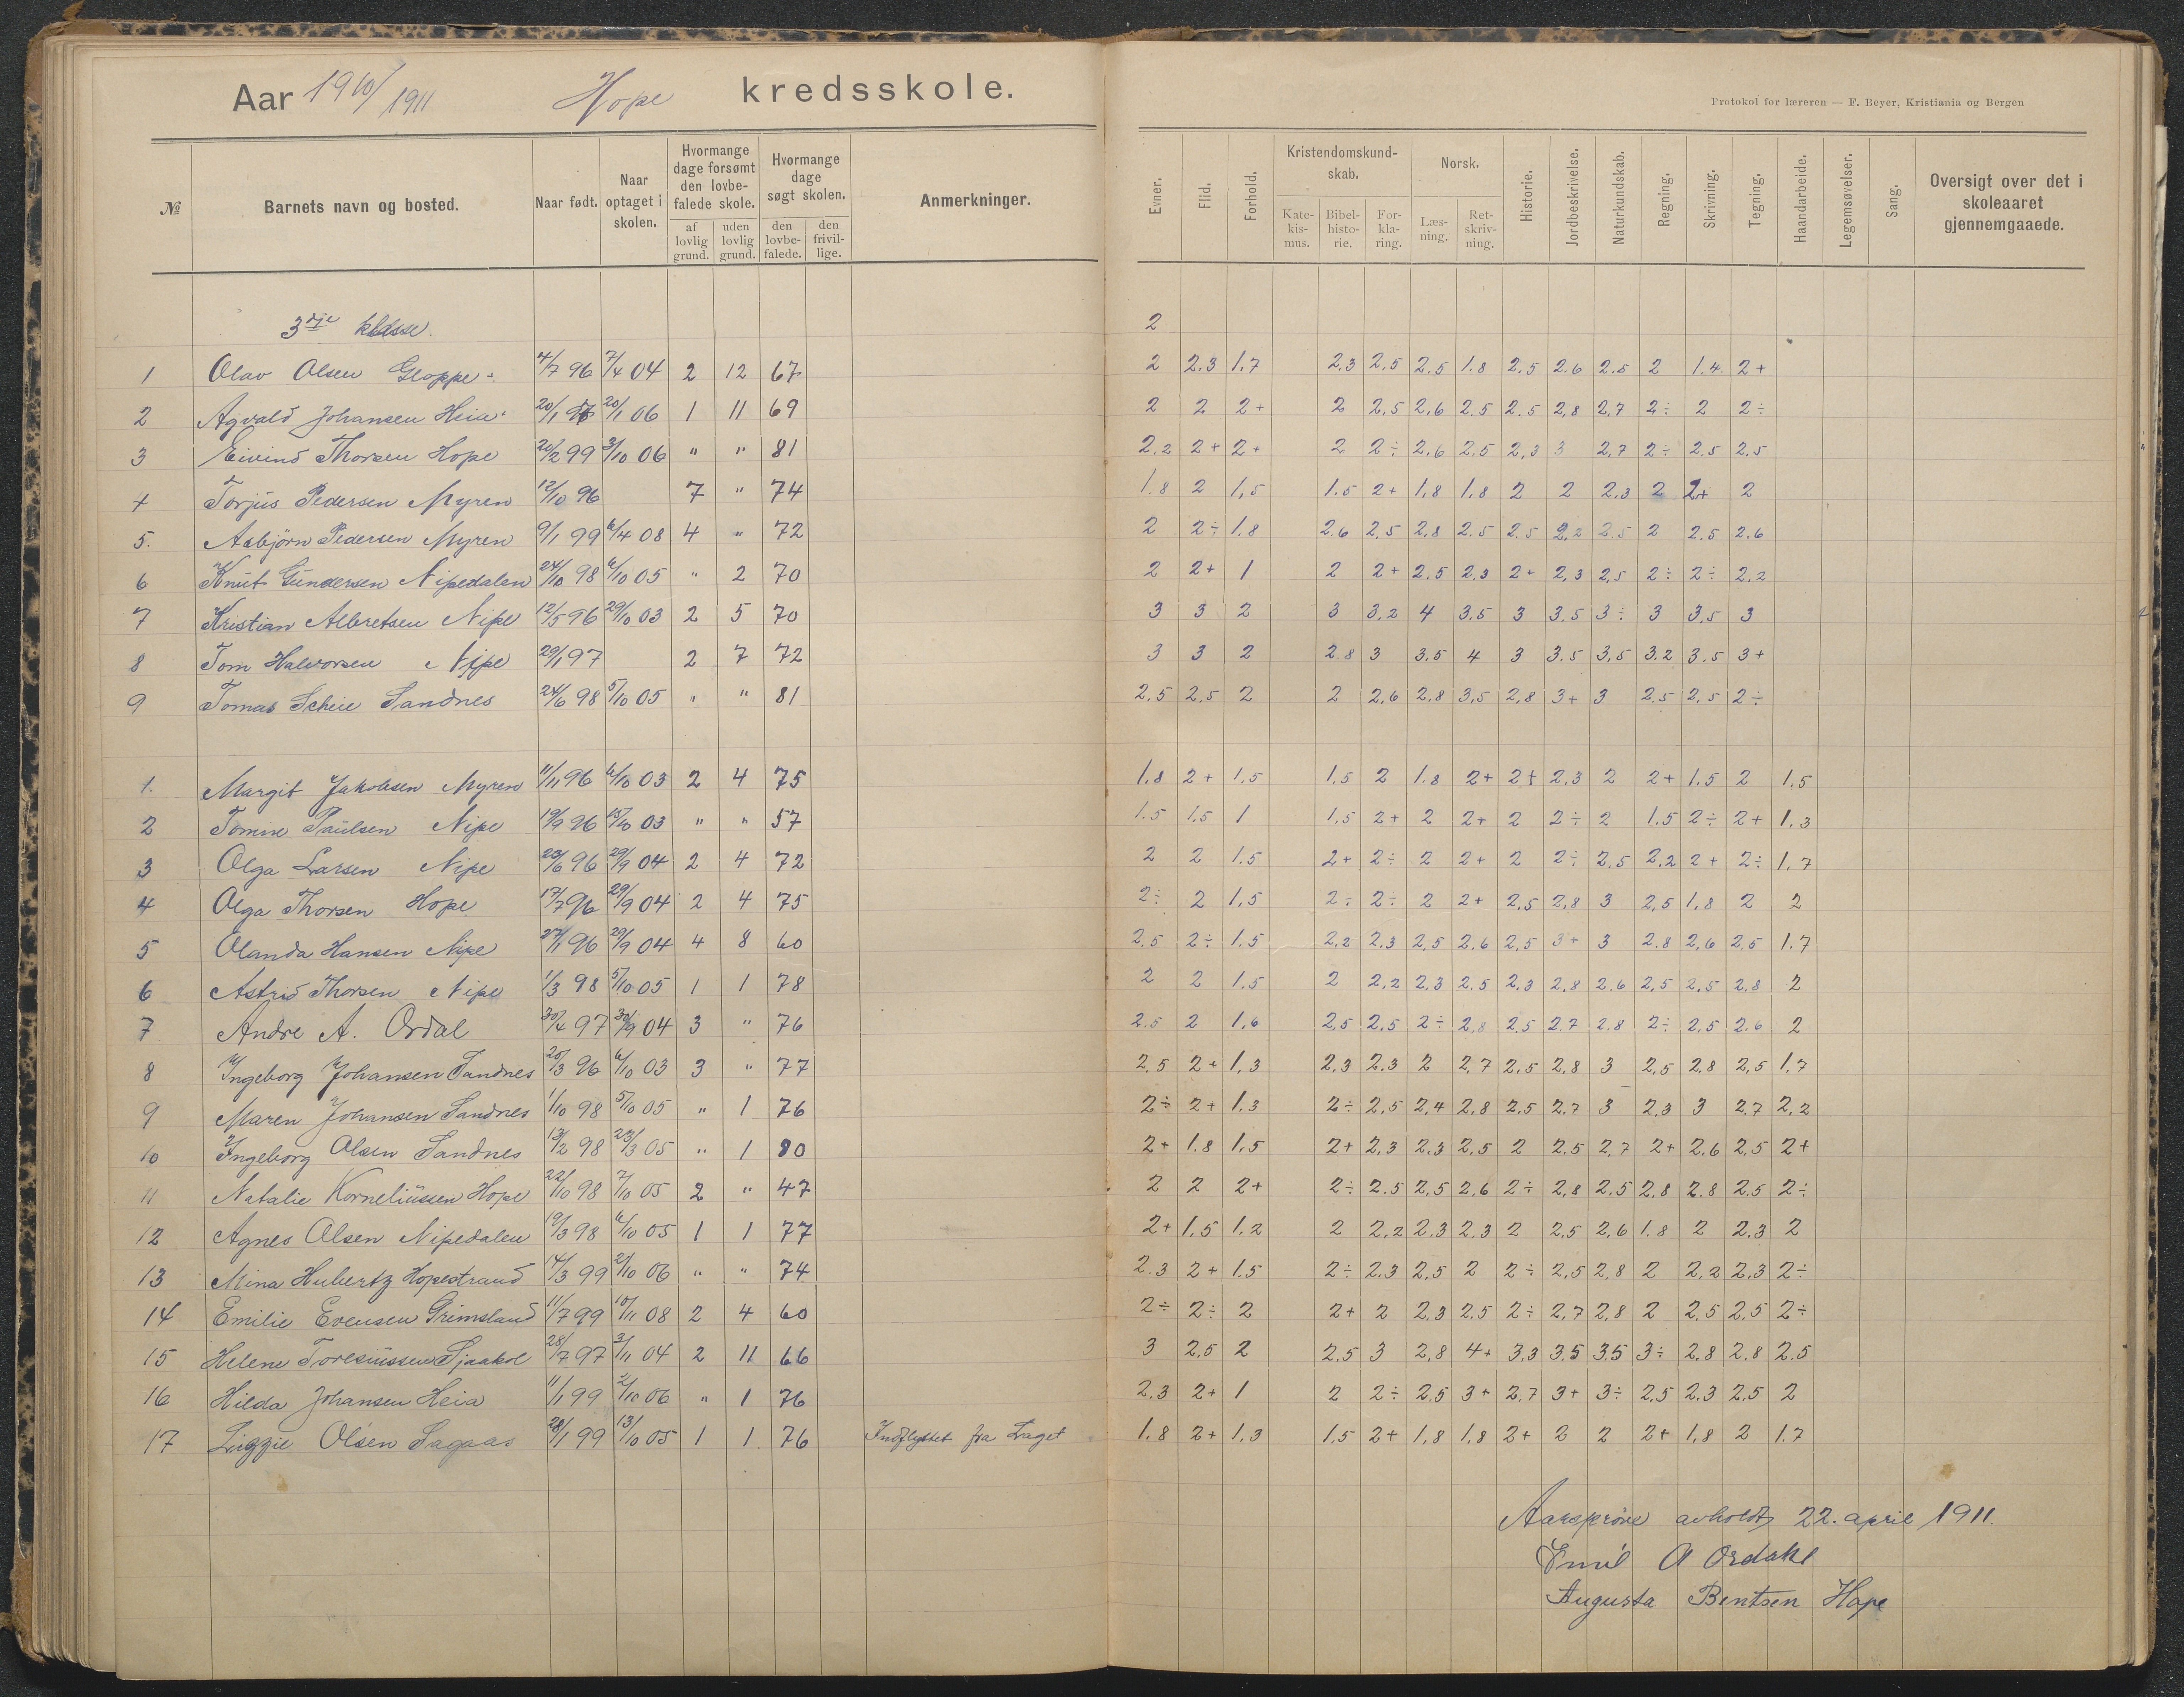 Aar 1910/1911 Hope kredsskole.
Protokol for læreren — F. Beyer, Kristiania og Bergen
№ Barnets navn og bosted. Naar født. Naar optaget i skolen. Hvormange dage forsømt den lovbefalede skole. af lovlig grund. uden lovlig grund. Hvormange dage søgt skolen. den lovbefalede. den frivillige. Anmerkninger.
Evner. Flid. Forhold. Kristendomskundskab. Katekismus. Bibelhistorie. Forklaring. Norsk. Læsning. Retskrivning. Historie. Jordbeskrivelse. Naturkundskab. Regning. Skrivning. Tegning. Haandarbeide. Legemsøvelser. Sang. Oversigt over det i skoleaaret gjennemgaaede.
3die klasse. 2
1 Olav Olsen Gloppe 4/7 96 7/4 04 2 12 67 2 2.3 1.7 2.3 2.5 2.5 1.8 2.5 2.6 2.5 2 1.4 2+
2 Agvald Johansen Heia 20/1 20/1 06 1 11 69 2 2 2+ 2 2,5 2,6 2.5 2.5 2,8 2,7 2÷ 2 2÷
3 Eivind Thorsen Hope 20/2 99 3/10 06 " " 81 2.2 2+ 2+ 2 2÷ 2,6 2.5 2,3 3 2,7 2÷ 2.5 2.5
4 Torjus Pedersen Myren 12/10 96 7 " 74 1.8 2 1,5 1.5 2+ 1,8 1,8 2 2 2,3 2 2+ 2
5. Asbjörn Pedersen Myren 9/1 99 6/4 08 4 " 72 2 2÷ 1.8 2.6 2,5 2,8 2.5 2.5 2,2 2.5 2 2.5 2.6
6 Knut Gundersen Nipedalen 24/10 98 6/10 05 " 2 70 2 2+ 1 2 2+ 2,5 2,3 2+ 2,3 2,5 2÷ 2÷ 2,2
7 Kristian Albretsen Nipe 12/5 96 29/10 03 2 5 70 3 3 2 3 3,2 4 3.5 3 3.5 3÷ 3 3,5 3
8 Tom Halvorsen Nipe 29/1 97 2 7 72 3 3 2 2.8 3 3.5 4 3 3.5 3,5 3.2 3.5 3+
9 Tomas Scheie Sandnes 24/6 98 5/10 05 " " 81 2,5 2,5 2 2 2,6 2,8 3,5 2,8 3+ 3 2.5 2,5 2÷
1. Margit Jakobsen Myren 11/11 96 6/10 03 2 4 75 1.8 2+ 1.5 1,5 2 1.8 2+ 2+ 2,3 2 2+ 1.5 2 1,5
2 Tomine Paulsen Nipe 19/9 96 15/10 03 " " 57 1.5 1.5 1 1,5 2+ 2 2+ 2 2÷ 2 1.5 2÷ 2+ 1.3
3 Olga Larsen Nipe 23/6 96 29/9 04 2 4 72 2 2 1.5 2+ 2÷ 2 2+ 2 2÷ 2.5 2,2 2+ 2÷ 1,7
4 Olga Thorsen Hope 17/7 96 29/9 04 2 4 75 2÷ 2 1,5 2÷ 2÷ 2 2+ 2,5 2,8 3 2,5 1,8 2 2
5 Olanda Hansen Nipe 27/1 96 29/9 04 4 8 60 2,5 2÷ 1.5 2,2 2.3 2,5 2.6 2,5 3+ 3 2.8 2,6 2,5 1.7
6 Astrid Thorsen Nipe 1/3 98 5/10 05 1 1 78 2 2 1.5 2 2,2 2,3 2.5 2,3 2,8 2.6 2,5 2,5 2,8 2
7 Andre A. Ordal 30/4 97 30/9 04 3 " 76 2.5 2 1,6 2,5 2,5 2÷ 2,8 2,5 2.7 2.8 2÷ 2,5 2.6 2
8 Ingeborg Johansen Sandnes 25/3 96 6/10 03 3 " 77 2.5 2+ 1,3 2,3 2.3 2 2,7 2,5 2,8 3 2,5 2,8 2,5 1,7
9 Maren Johansen Sandnes 1/10 98 5/10 05 " 1 76 2÷ 2+ 1.3 2÷ 2,5 2,4 2,8 2.5 2.7 3 2,3 3 2,7 2,2
10 Ingeborg Olsen Sandnes 13/2 98 23/3 05 " 1 80 2+ 1.8 1,5 2+ 2,3 2.3 2,5 2 2.5 2,7 2+ 2.6 2,5 2+
11 Natalie Korneliussen Hope 22/10 98 7/10 05 2 " 47 2 2 2+ 2÷ 2.5 2,5 2,6 2÷ 2,8 2.5 2.8 2.8 2.5 2÷
12 Agnes Olsen Nipedalen 19/3 98 6/10 05 1 1 77 2+ 1.5 1,2 2 2,2 2.3 2.3 2 2,5 2,6 1.8 2 2,3 2
13 Mina Hubertz Hopestrand 14/3 99 2/10 06 " " 74 2.3 2+ 1.5 2÷ 2.3 2,5 2 2÷ 2,5 2,8 2 2,2 2,3 2÷
14 Emilie Evensen Grimsland 11/7 99 10/11 08 2 4 60 2÷ 2÷ 2 2+ 2 2,3 2.5 2÷ 2,7 2,8 2 2,5 2,5 2÷
15 Helene 28/7 97 3/11 04 2 11 66 3 2,5 2 2,5 3 2,8 4+ 3,3 3.5 3.5 3÷ 2.8 2.8 2.5
16 Hilda Johansen Heia 11/1 99 2/10 06 " 1 76 2.3 2+ 1 2 2÷ 2.5 3+ 2.7 3+ 3÷ 2.5 2.3 2.5 2
17 Olsen Sagaas 28/1 99 13/10 05 1 1 76 Indflyttet fra Laget 1.8 2+ 1,3 1,5 2+ 1,8 1,8 2+ 2 2 2+ 1,8 2 1.7
Aarsprøve avholdt 22. april 1911.
Emil A Ordahl
Augusta Bentsen Hope